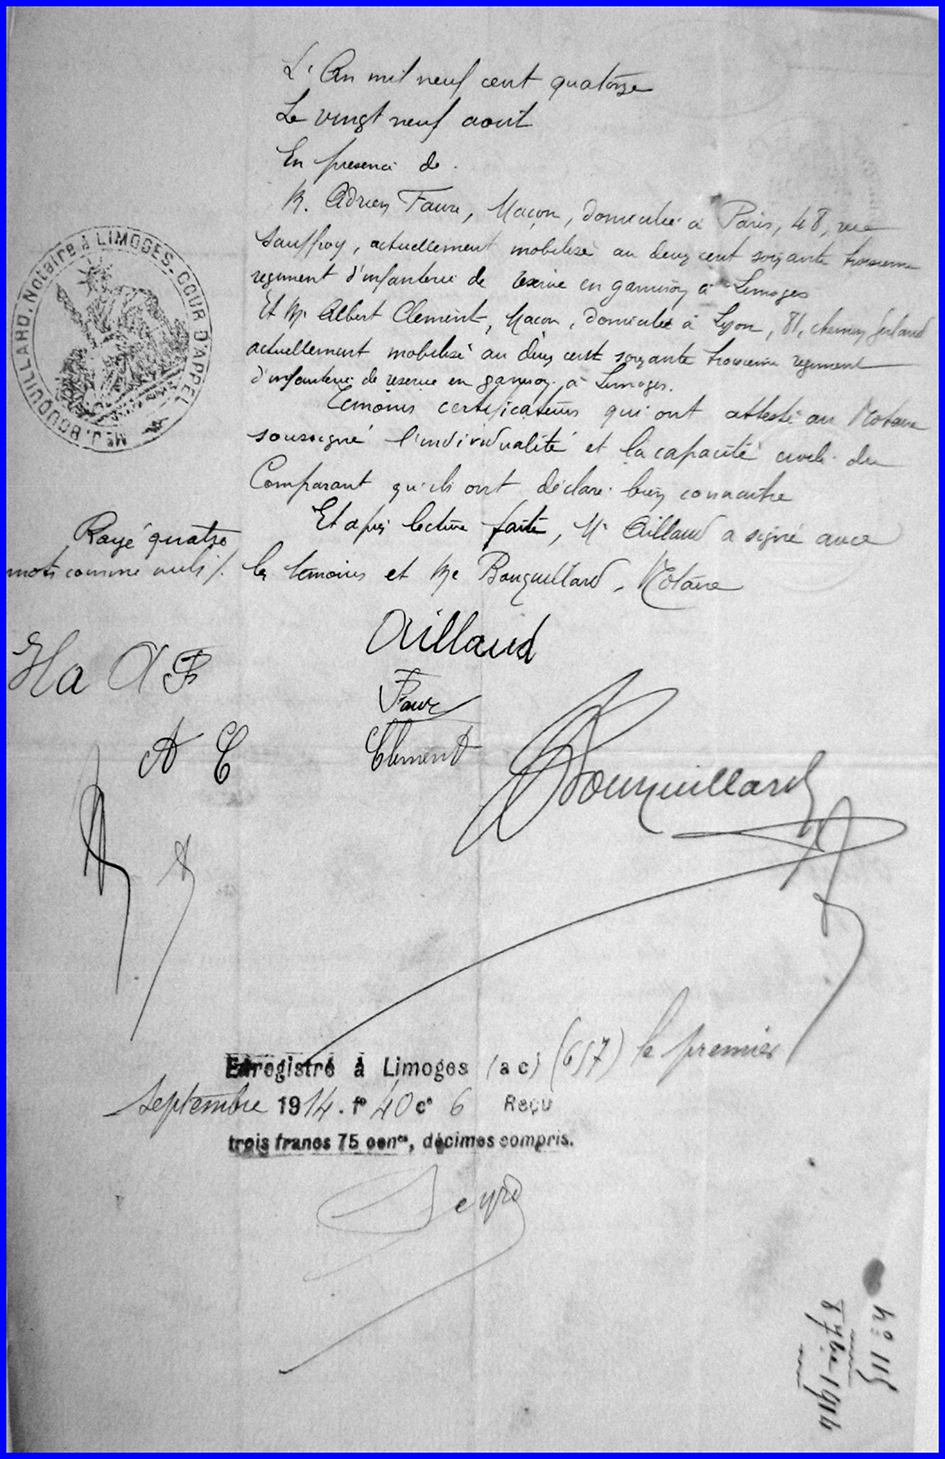 L'An mil neuf cent quatorze
Le vingt neuf aout
En presence de
M. Adrien Faure, Maçon, domicilié à Paris, 48, rue
Sauffroy, actuellement mobilisé au deux cent soixante troisieme
regiment d'infanterie de reserve en garnison à Limoges
Et Mr Albert Clement, Macon, domicilié à Lyon, 81, chemin Gerland
actuellement mobilisé au deux cent soixante troisieme regiment
d'infanterie de reserve en garnison à Limoges.
Temoins certificateurs qui ont attesté au Notaire
soussigné l'individualité et la capacité civile du
Comparant qu'ils ont déclaré bien connaitre
Et après lecture faite, Mr Aillaud a signé avec
les temoins et Me Bouquillard, Notaire
Rayé quatre
mots comme nuls /.
Me J. BOUQUILLARD, Notaire à LIMOGES - COUR D'APPEL
Aillaud
Faure
Clement
Bouquillard
Ha A F
A C
Enregistré à Limoges (a c) (657) le premier
septembre 1914. fo 40 co 6 Reçu
trois francs 75 cencs, décimes compris.
no 115
8 7bre 1914